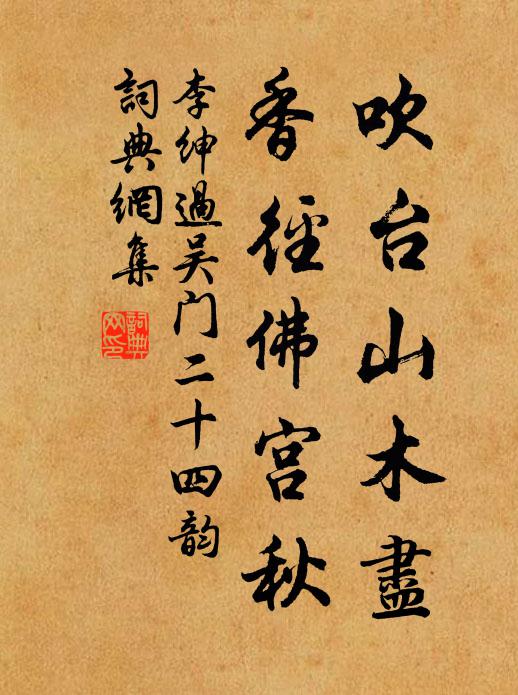 吹台山木盡
香徑佛宫秋
李紳過吴门二十四韵
詞典網集
詞典網印